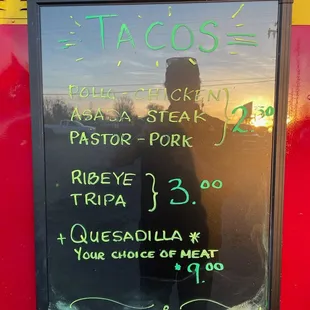 = TACOS =
POLLO - CHICKEN
ASADA - STEAK } 2.50
PASTOR - PORK
RIBEYE } 3.00
TRIPA
+ QUESADILLA *
YOUR CHOICE OF MEAT
*9.00